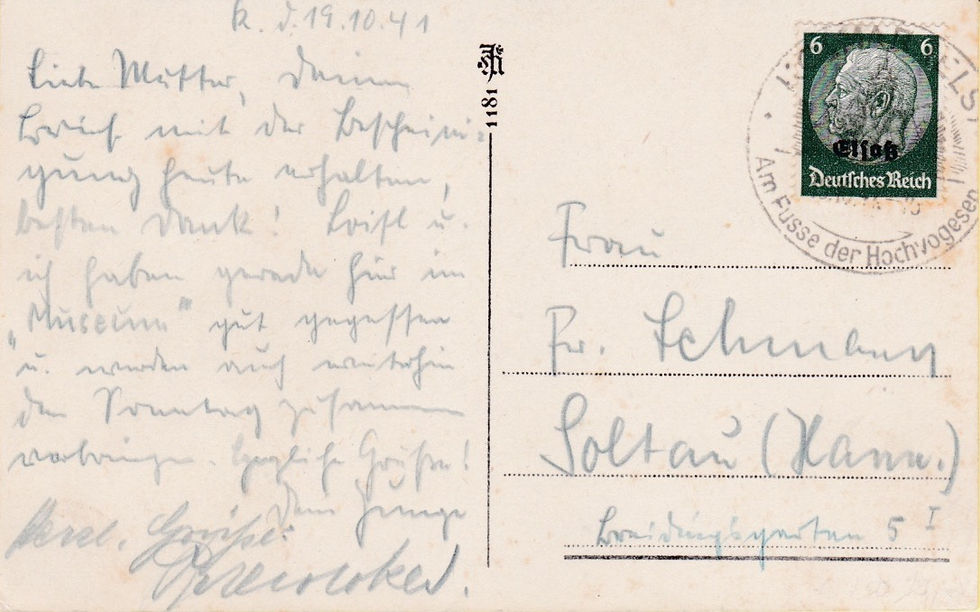 K. d. 19.10.41
Liebe Mutter, Deinen
Brief mit der Bescheini-
gung heute erhalten,
besten Dank! Loisl u.
ich haben gerade hier im
„Museum" gut gegessen
u. werden auch weiterhin
den Sonntag zusammen
verbringen. Herzliche Grüße!
Dein Junge
Herzl. Grüße!
1181
6 6
Elsaß
Deutsches Reich
Am Fusse der Hochvogesen
Frau
Fr. Lehmann
Soltau (Hann.)
Breidingsgarten 5 I